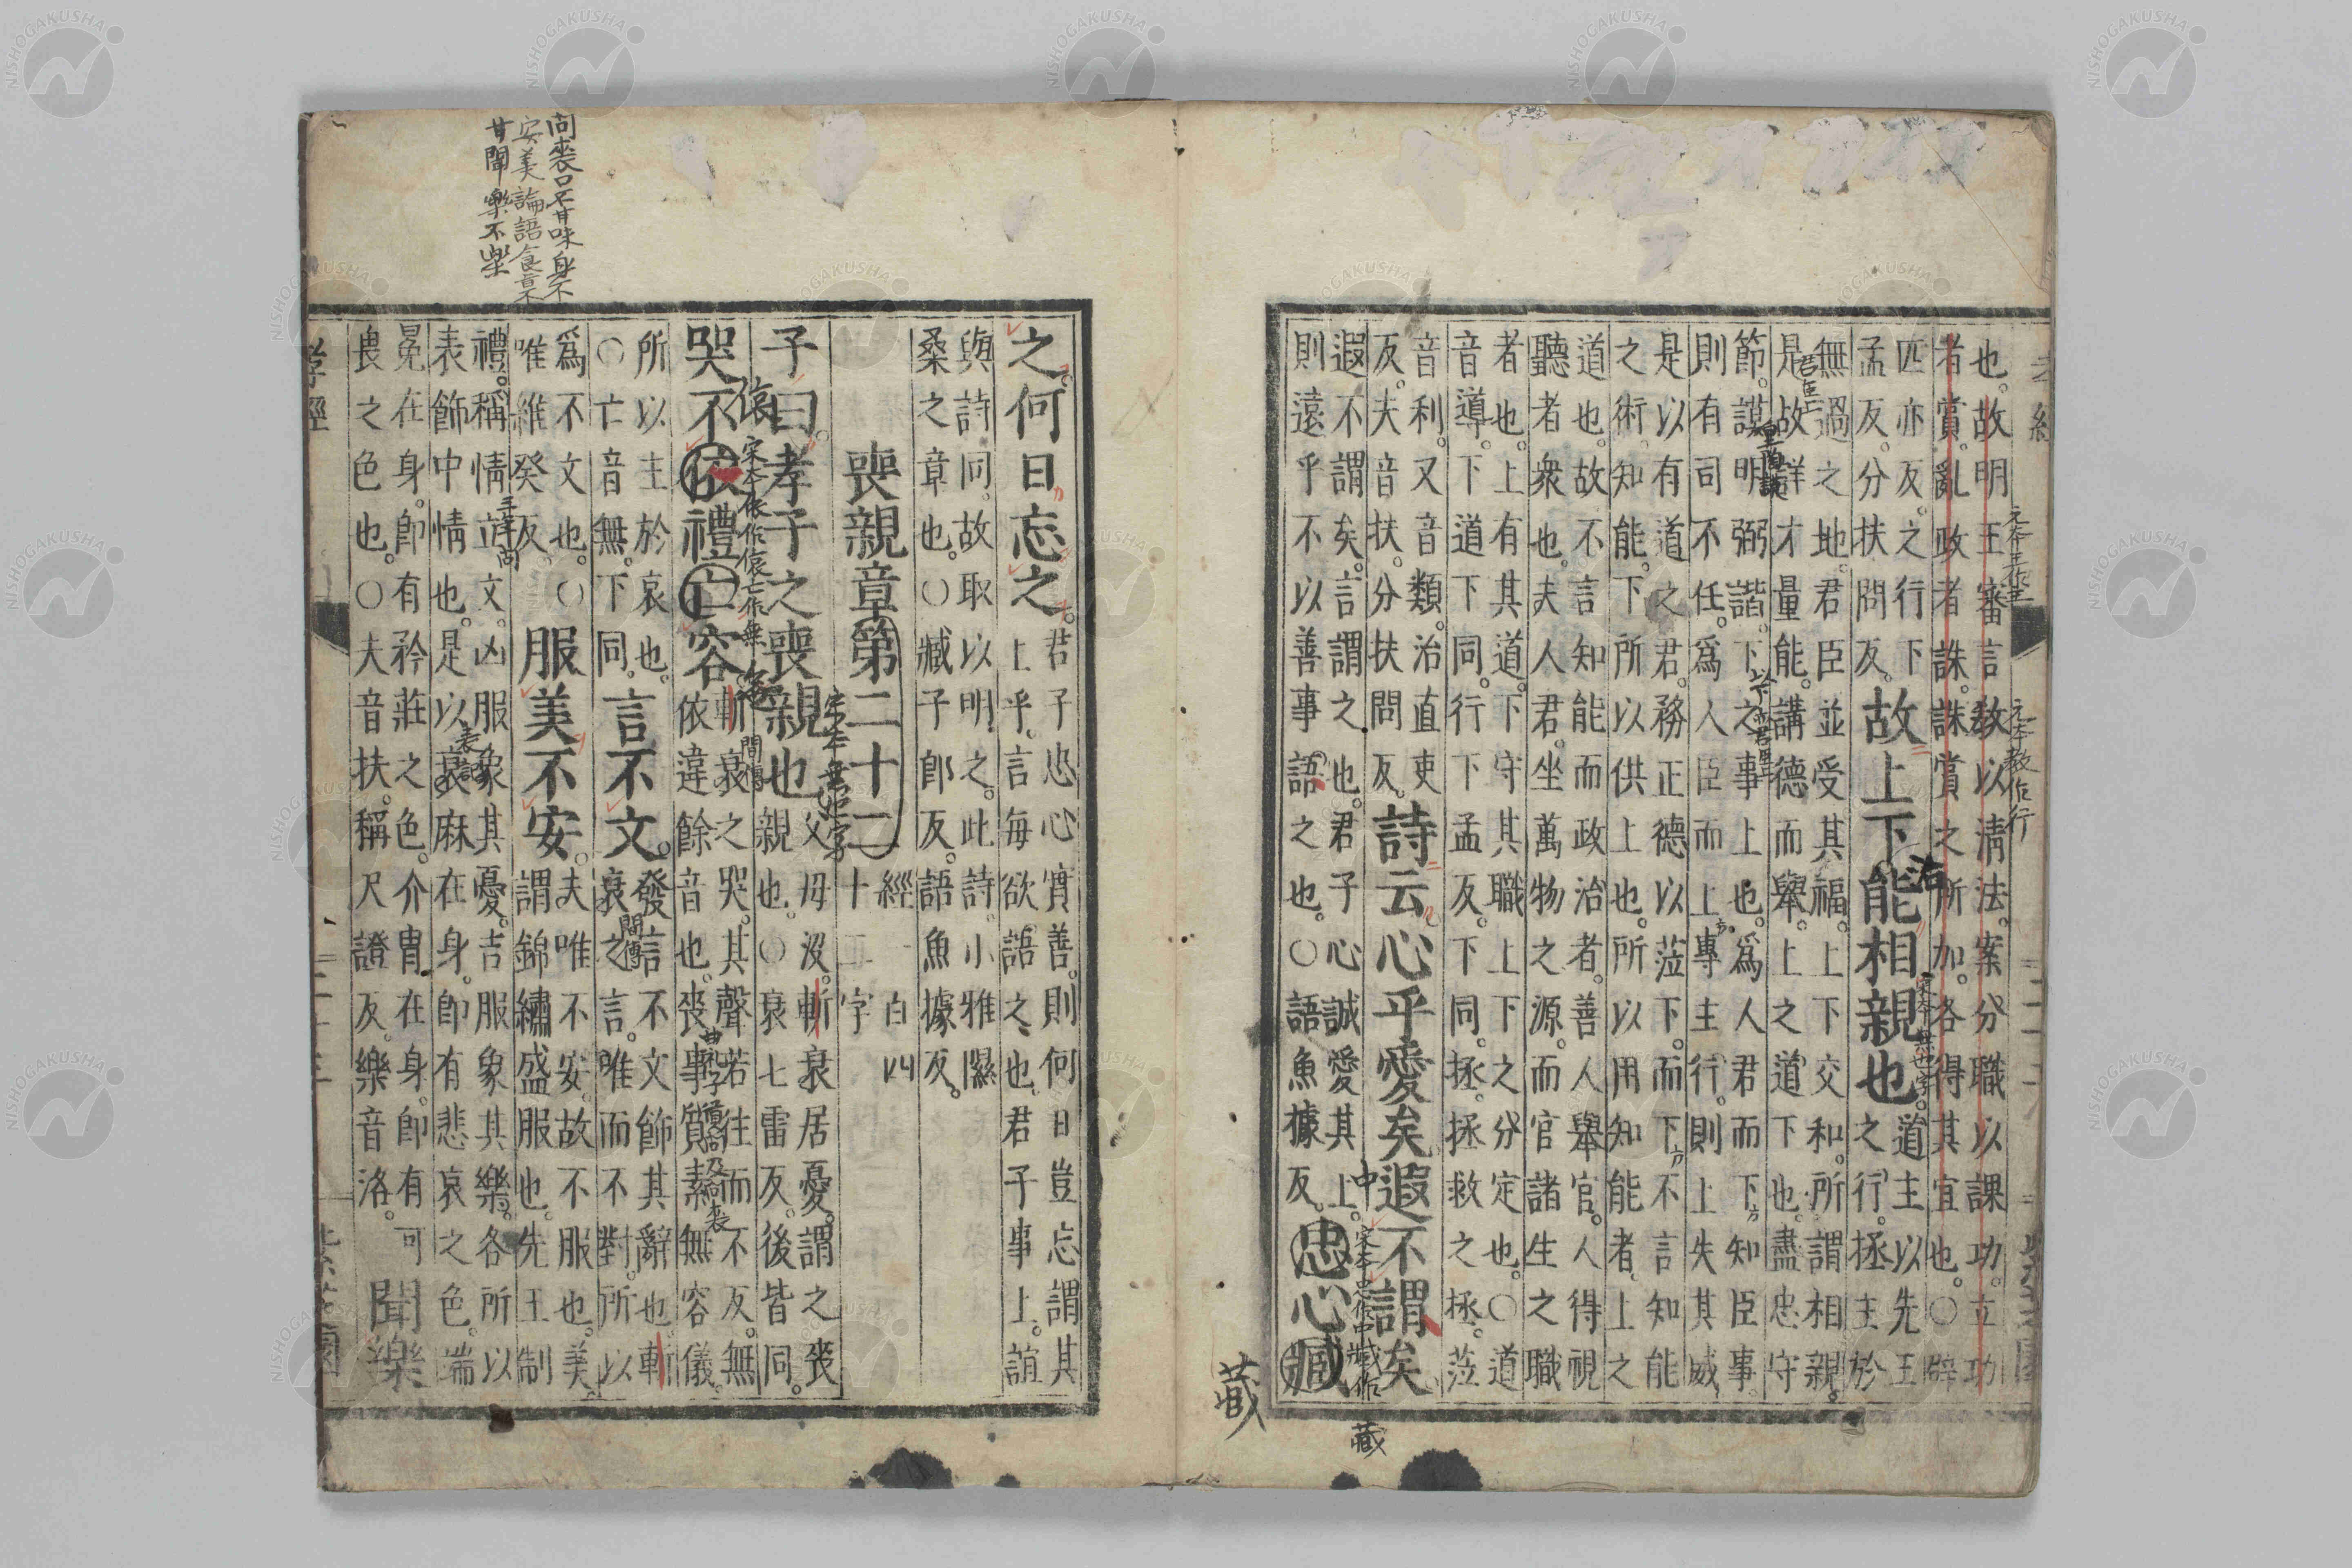 也。故明王審言教以清法。案分職以課功。立功
者賞。亂政者誅。誅賞之所加。各得其宜也。○辟
匹亦反。之行下
孟反。分扶問反。
故上下能相親也
道主以先王
之行。拯主於
無過之地。君臣並受其福。上下交和。所謂相親。
是故詳才量能。講德而舉。上之道下也。盡忠守
節。謀明弼諧。下之事上也。爲人君而下知臣事。
則有司不任。爲人臣而上專主行。則上失其威。
是以有道之君。務正德以蒞下。而下不言知能
之術。知能。下所以供上也。所以用知能者。上之
道也。故不言知能而政治者。善人舉官。人得視
聽者衆也。夫人君。坐萬物之源。而官諸生之職
者也。上有其道。下守其職。上下之分定也。○道
音導。下道下同。行下孟反。下同。拯。拯救之拯。蒞
音利。又音類。治直吏
反。夫音扶。分扶問反。
詩云心乎愛矣遐不謂矣
遐不謂矣。言謂之也。君子心誠愛其上。
則遠乎不以善事語之也。○語魚據反。
忠心臧
之何日忘之。
君子忠心實善。則何日豈忘謂其
上乎。言每欲語之也。君子事上。誼
與詩同。故取以明之。此詩。小雅隰
桑之章也。○臧子郎反。語魚據反。
喪親章第二十二
經一百四
十二字
子曰。孝子之喪親也
父母沒。斬衰居憂。謂之喪
親也。○衰七雷反。後皆同。
哭不依禮亡容
斬衰之哭。其聲若往而不反。無
依違餘音也。喪事質素無容儀。
所以主於哀也。
○亡音無。下同。
言不文。
發言不文飾其辭也。斬
衰之言。唯而不對。所以
爲不文也。○
唯維癸反
服美不安。
夫唯不安。故不服也。美。
謂錦繡盛服也。先王制
禮。稱情立文。凶服象其憂。吉服象其樂。各所以
表飾中情也。是以衰麻在身。卽有悲哀之色。端
冕在身。卽有矜莊之色。介冑在身。卽有可
畏之色也。○夫音扶。稱尺證反。樂音洛。
聞樂
孝經
元本王作主
元本教作行
治
宋本無也字
中
宋本忠作中臧作藏
藏
藏
宋本無也字
偯
宋本依作偯亡作無
間傳
間傳
表記
問喪口不甘味身不
安美論語食旨不
甘聞樂不樂